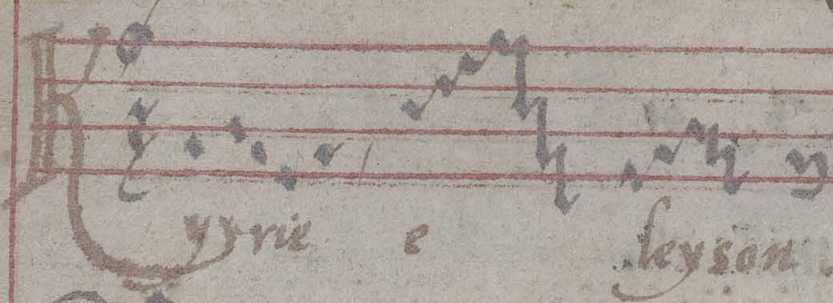 Kyrie e leyson